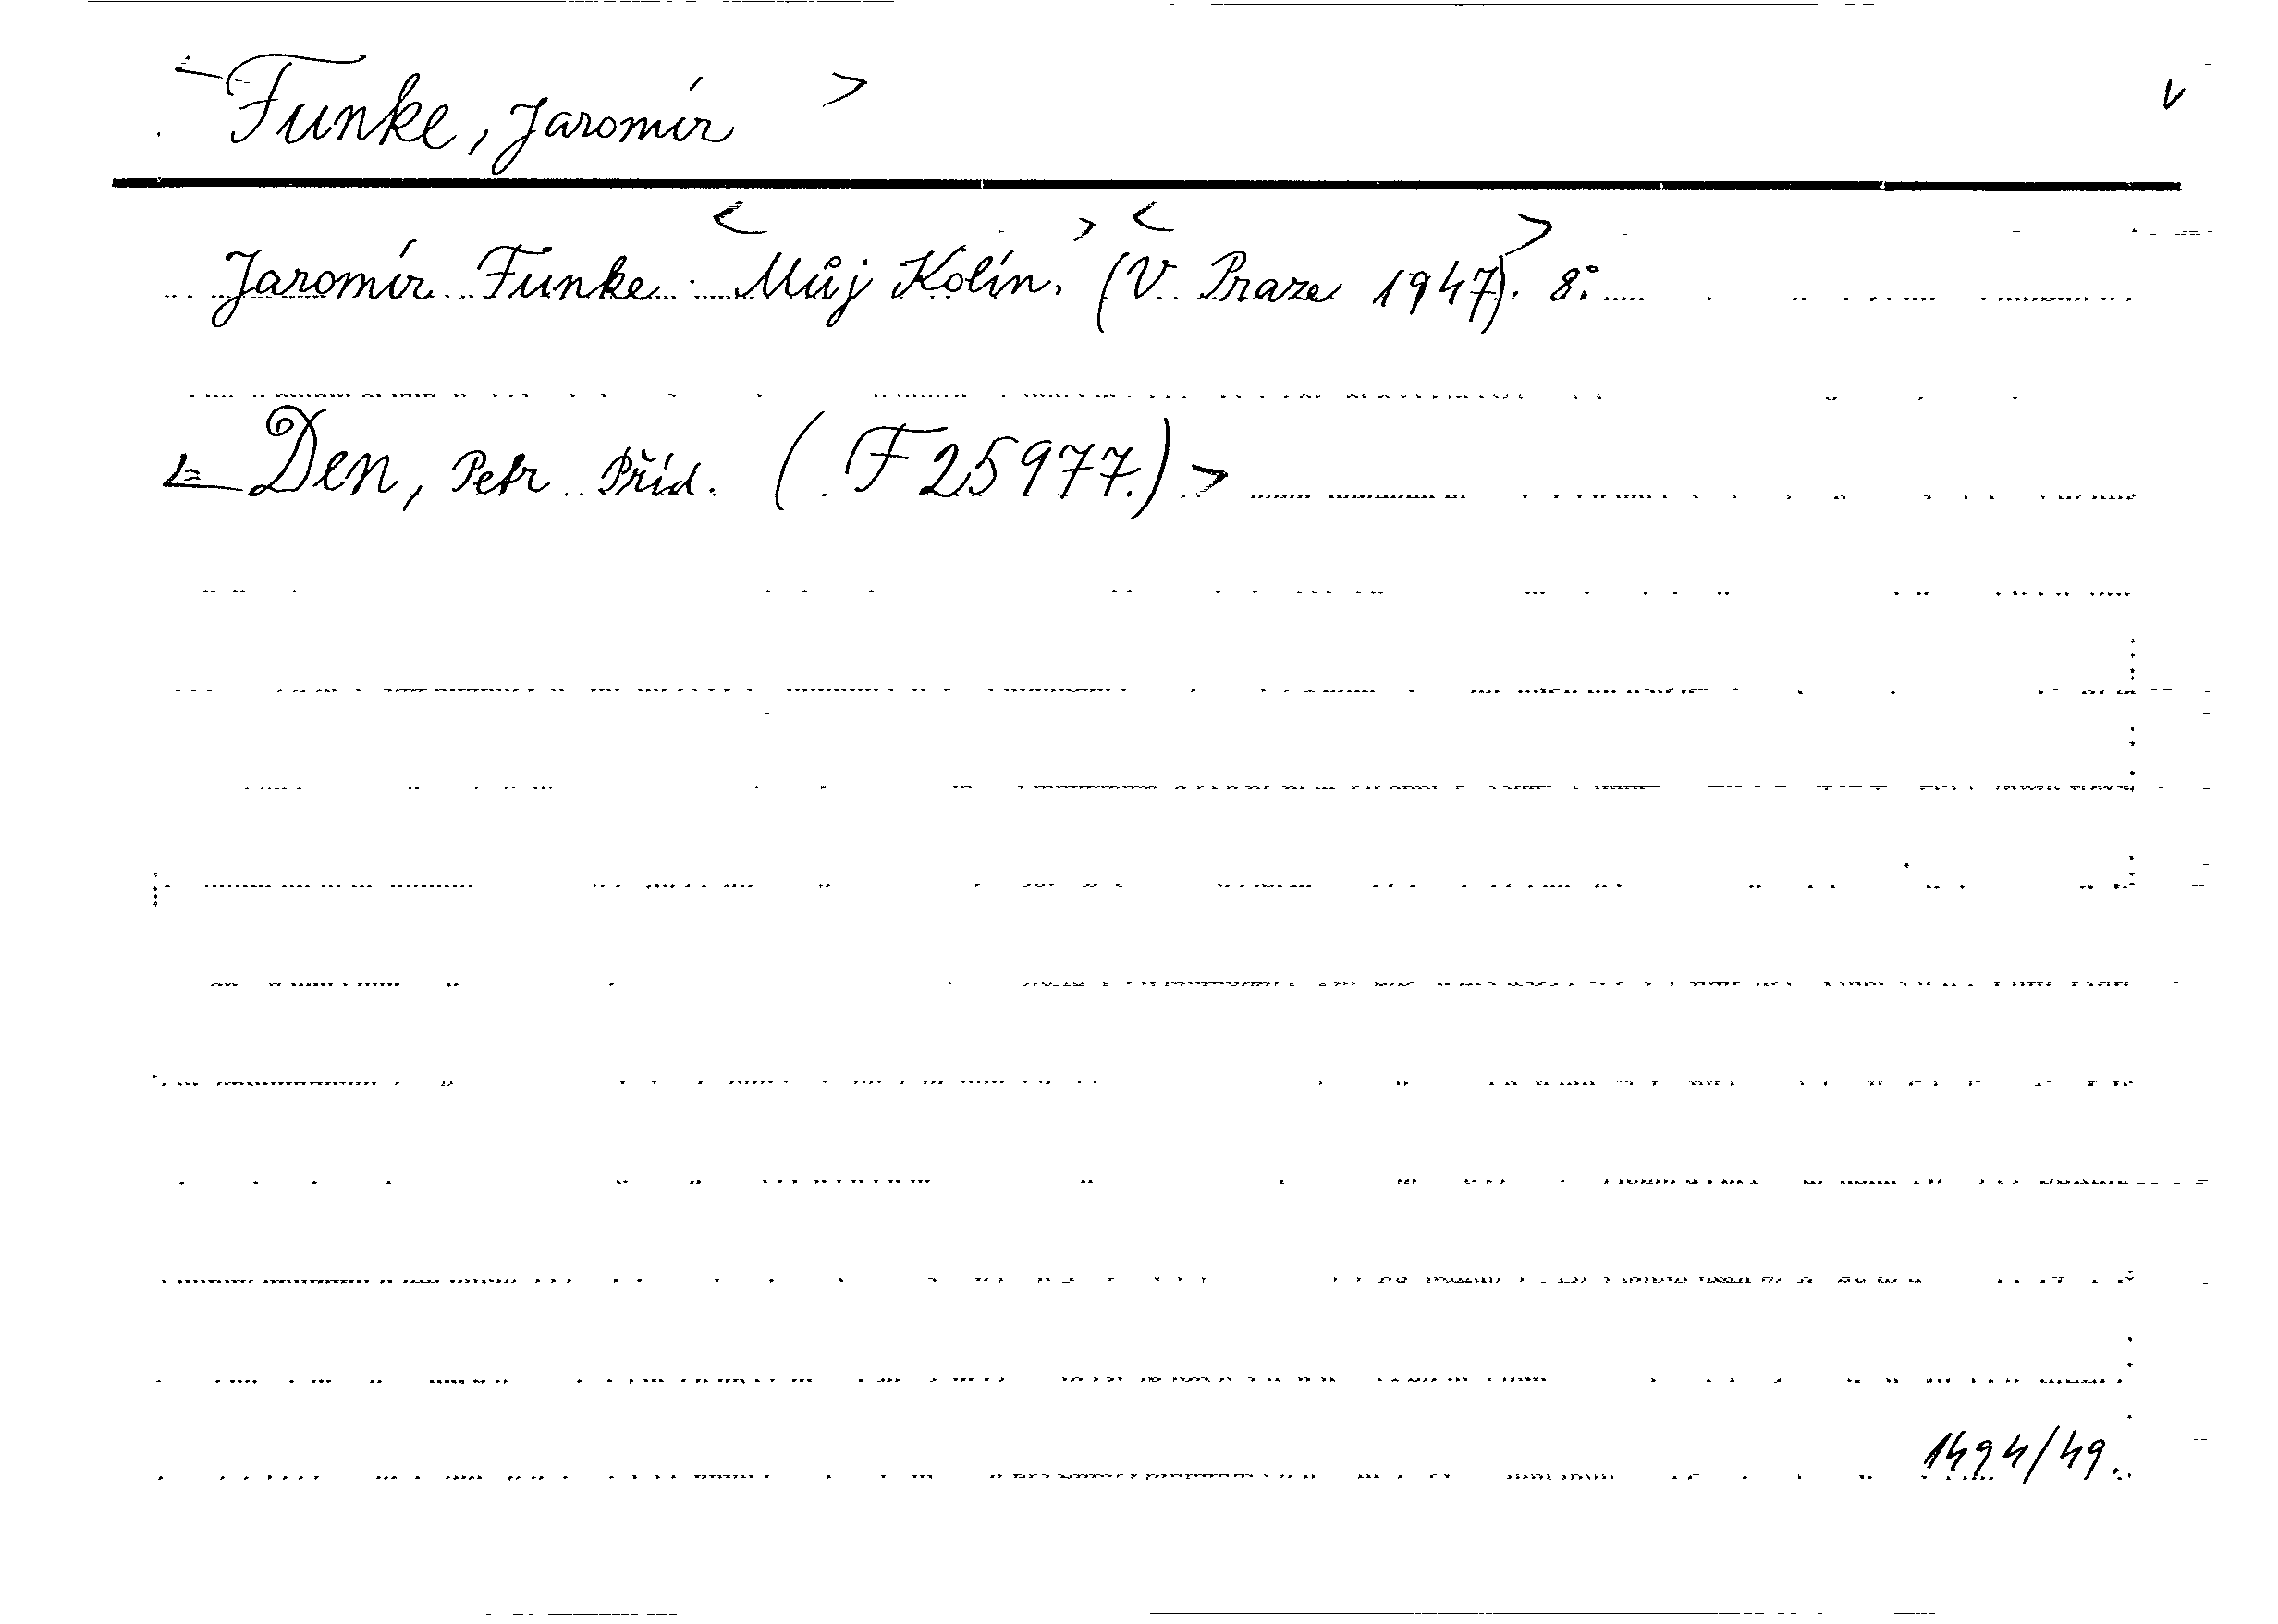 Funke, Jaromír v
Jaromír Funke: Můj Kolín. (V Praze 1947). 8°.
Den, Petr Příd. (F 25977.)
1494/49.